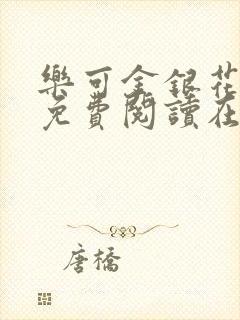 樂可金銀花
免費閱讀在
唐橋